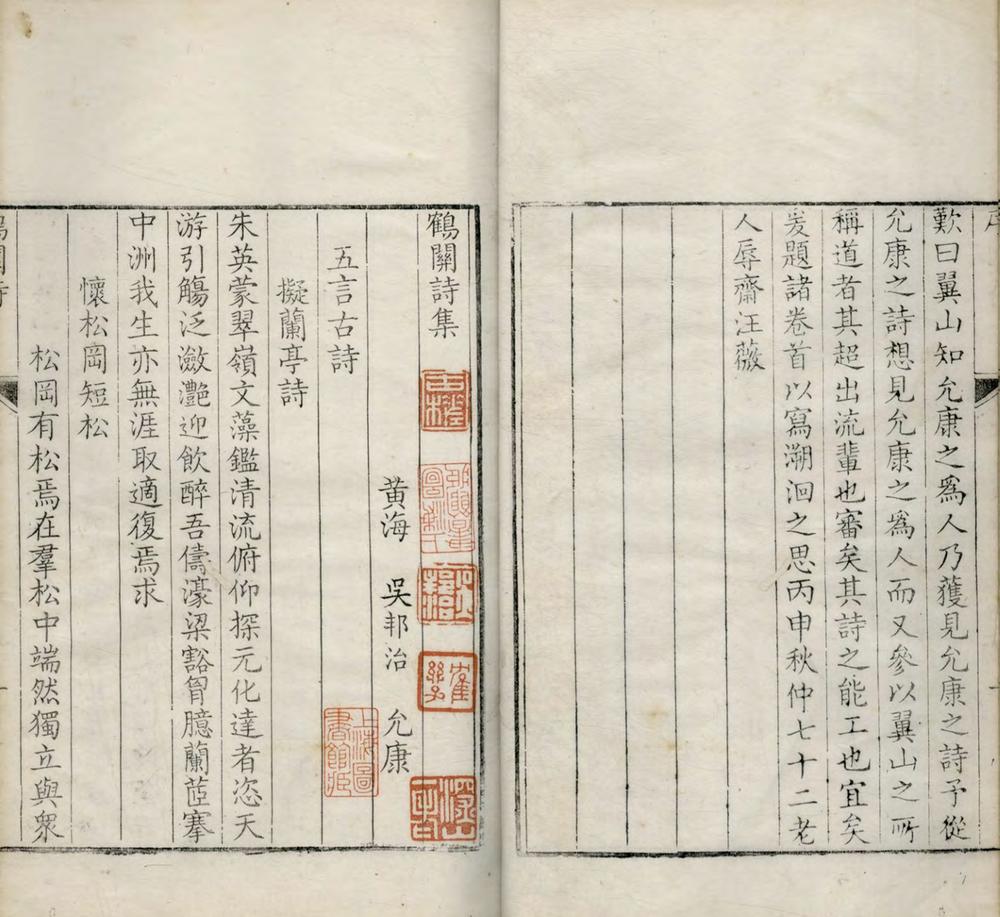 歎曰翼山知允康之爲人乃獲見允康之詩予從
允康之詩想見允康之爲人而又參以翼山之所
稱道者其超出流輩也審矣其詩之能工也宜矣
爰題諸卷首以寫溯洄之思丙申秋仲七十二老
人辱齋汪薇
鶴關詩集
黃海 吳邦治 允康
上海圖書館藏
五言古詩
擬蘭亭詩
朱英蒙翠嶺文藻鑑清流俯仰探元化達者恣天
游引觴泛瀲灩迎飲醉吾儔濠梁豁胷臆蘭茝搴
中洲我生亦無涯取適復焉求
懷松岡短松
松岡有松焉在羣松中端然獨立與衆